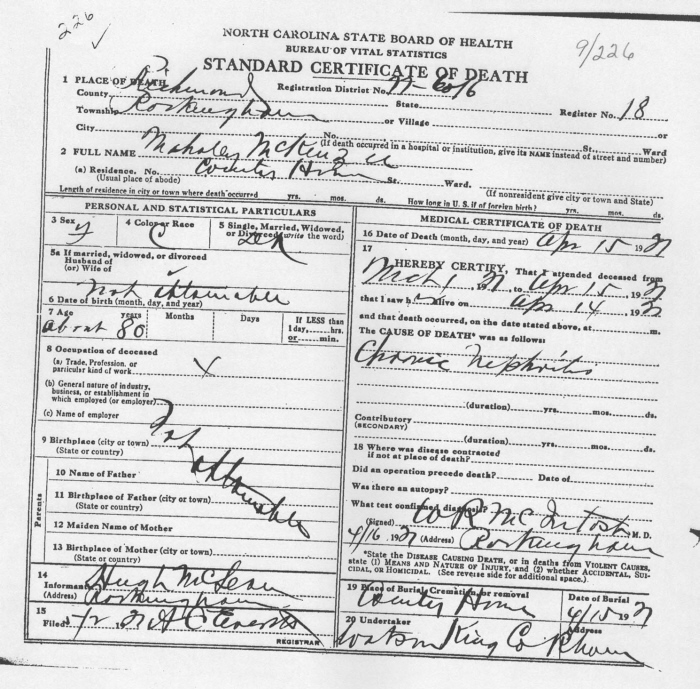 226 ✓
9/226
NORTH CAROLINA STATE BOARD OF HEALTH
BUREAU OF VITAL STATISTICS
STANDARD CERTIFICATE OF DEATH
1 PLACE OF DEATH
Registration District No. 77-
County Richmond State Register No. 18
Township Rockingham or Village or
City No. St. Ward
(If death occurred in a hospital or institution, give its NAME instead of street and number)
2 FULL NAME Mahaley McKenzie
(a) Residence. No. County Home St. Ward.
(Usual place of abode) (If nonresident give city or town and State)
Length of residence in city or town where death occurred yrs. mos. ds. How long in U. S. if of foreign birth? yrs. mos. ds.
PERSONAL AND STATISTICAL PARTICULARS
3 Sex F 4 Color or Race C 5 Single, Married, Widowed, or Divorced (write the word)
5a If married, widowed, or divorced
Husband of
(or) Wife of
Not obtainable
6 Date of birth (month, day, and year)
7 Age years Months Days If LESS than
about 80 1 day, hrs.
or min.
8 Occupation of deceased
(a) Trade, Profession, or
particular kind of work X
(b) General nature of industry,
business, or establishment in
which employed (or employer)
(c) Name of employer
9 Birthplace (city or town) Not
(State or country) obtainable
Parents
10 Name of Father
11 Birthplace of Father (city or town)
(State or country)
12 Maiden Name of Mother
13 Birthplace of Mother (city or town)
(State or country)
14
Informant Hugh McLean
(Address) Rockingham
15
Filed 192
REGISTRAR
MEDICAL CERTIFICATE OF DEATH
16 Date of Death (month, day, and year) Apr 15 1927
17
I HEREBY CERTIFY, That I attended deceased from
Mch 1, 1927 to Apr 15, 1927
that I saw h alive on Apr 14 1927
and that death occurred, on the date stated above, at m.
The CAUSE OF DEATH* was as follows:
Chronic Nephritis
(duration) yrs. mos. ds.
Contributory
(SECONDARY)
(duration) yrs. mos. ds.
18 Where was disease contracted
if not at place of death?
Did an operation precede death? Date of
Was there an autopsy?
What test confirmed diagnosis?
(Signed) W R McIntosh M. D.
4/16 1927 (Address) Rockingham
*State the DISEASE CAUSING DEATH, or in deaths from VIOLENT CAUSES,
state (1) MEANS AND NATURE OF INJURY, and (2) whether ACCIDENTAL, SUI-
CIDAL, or HOMICIDAL. (See reverse side for additional space.)
19 Place of Burial, Cremation, or removal Date of Burial
County Home 4/15 1927
20 Undertaker Address
Watson King Co Rham